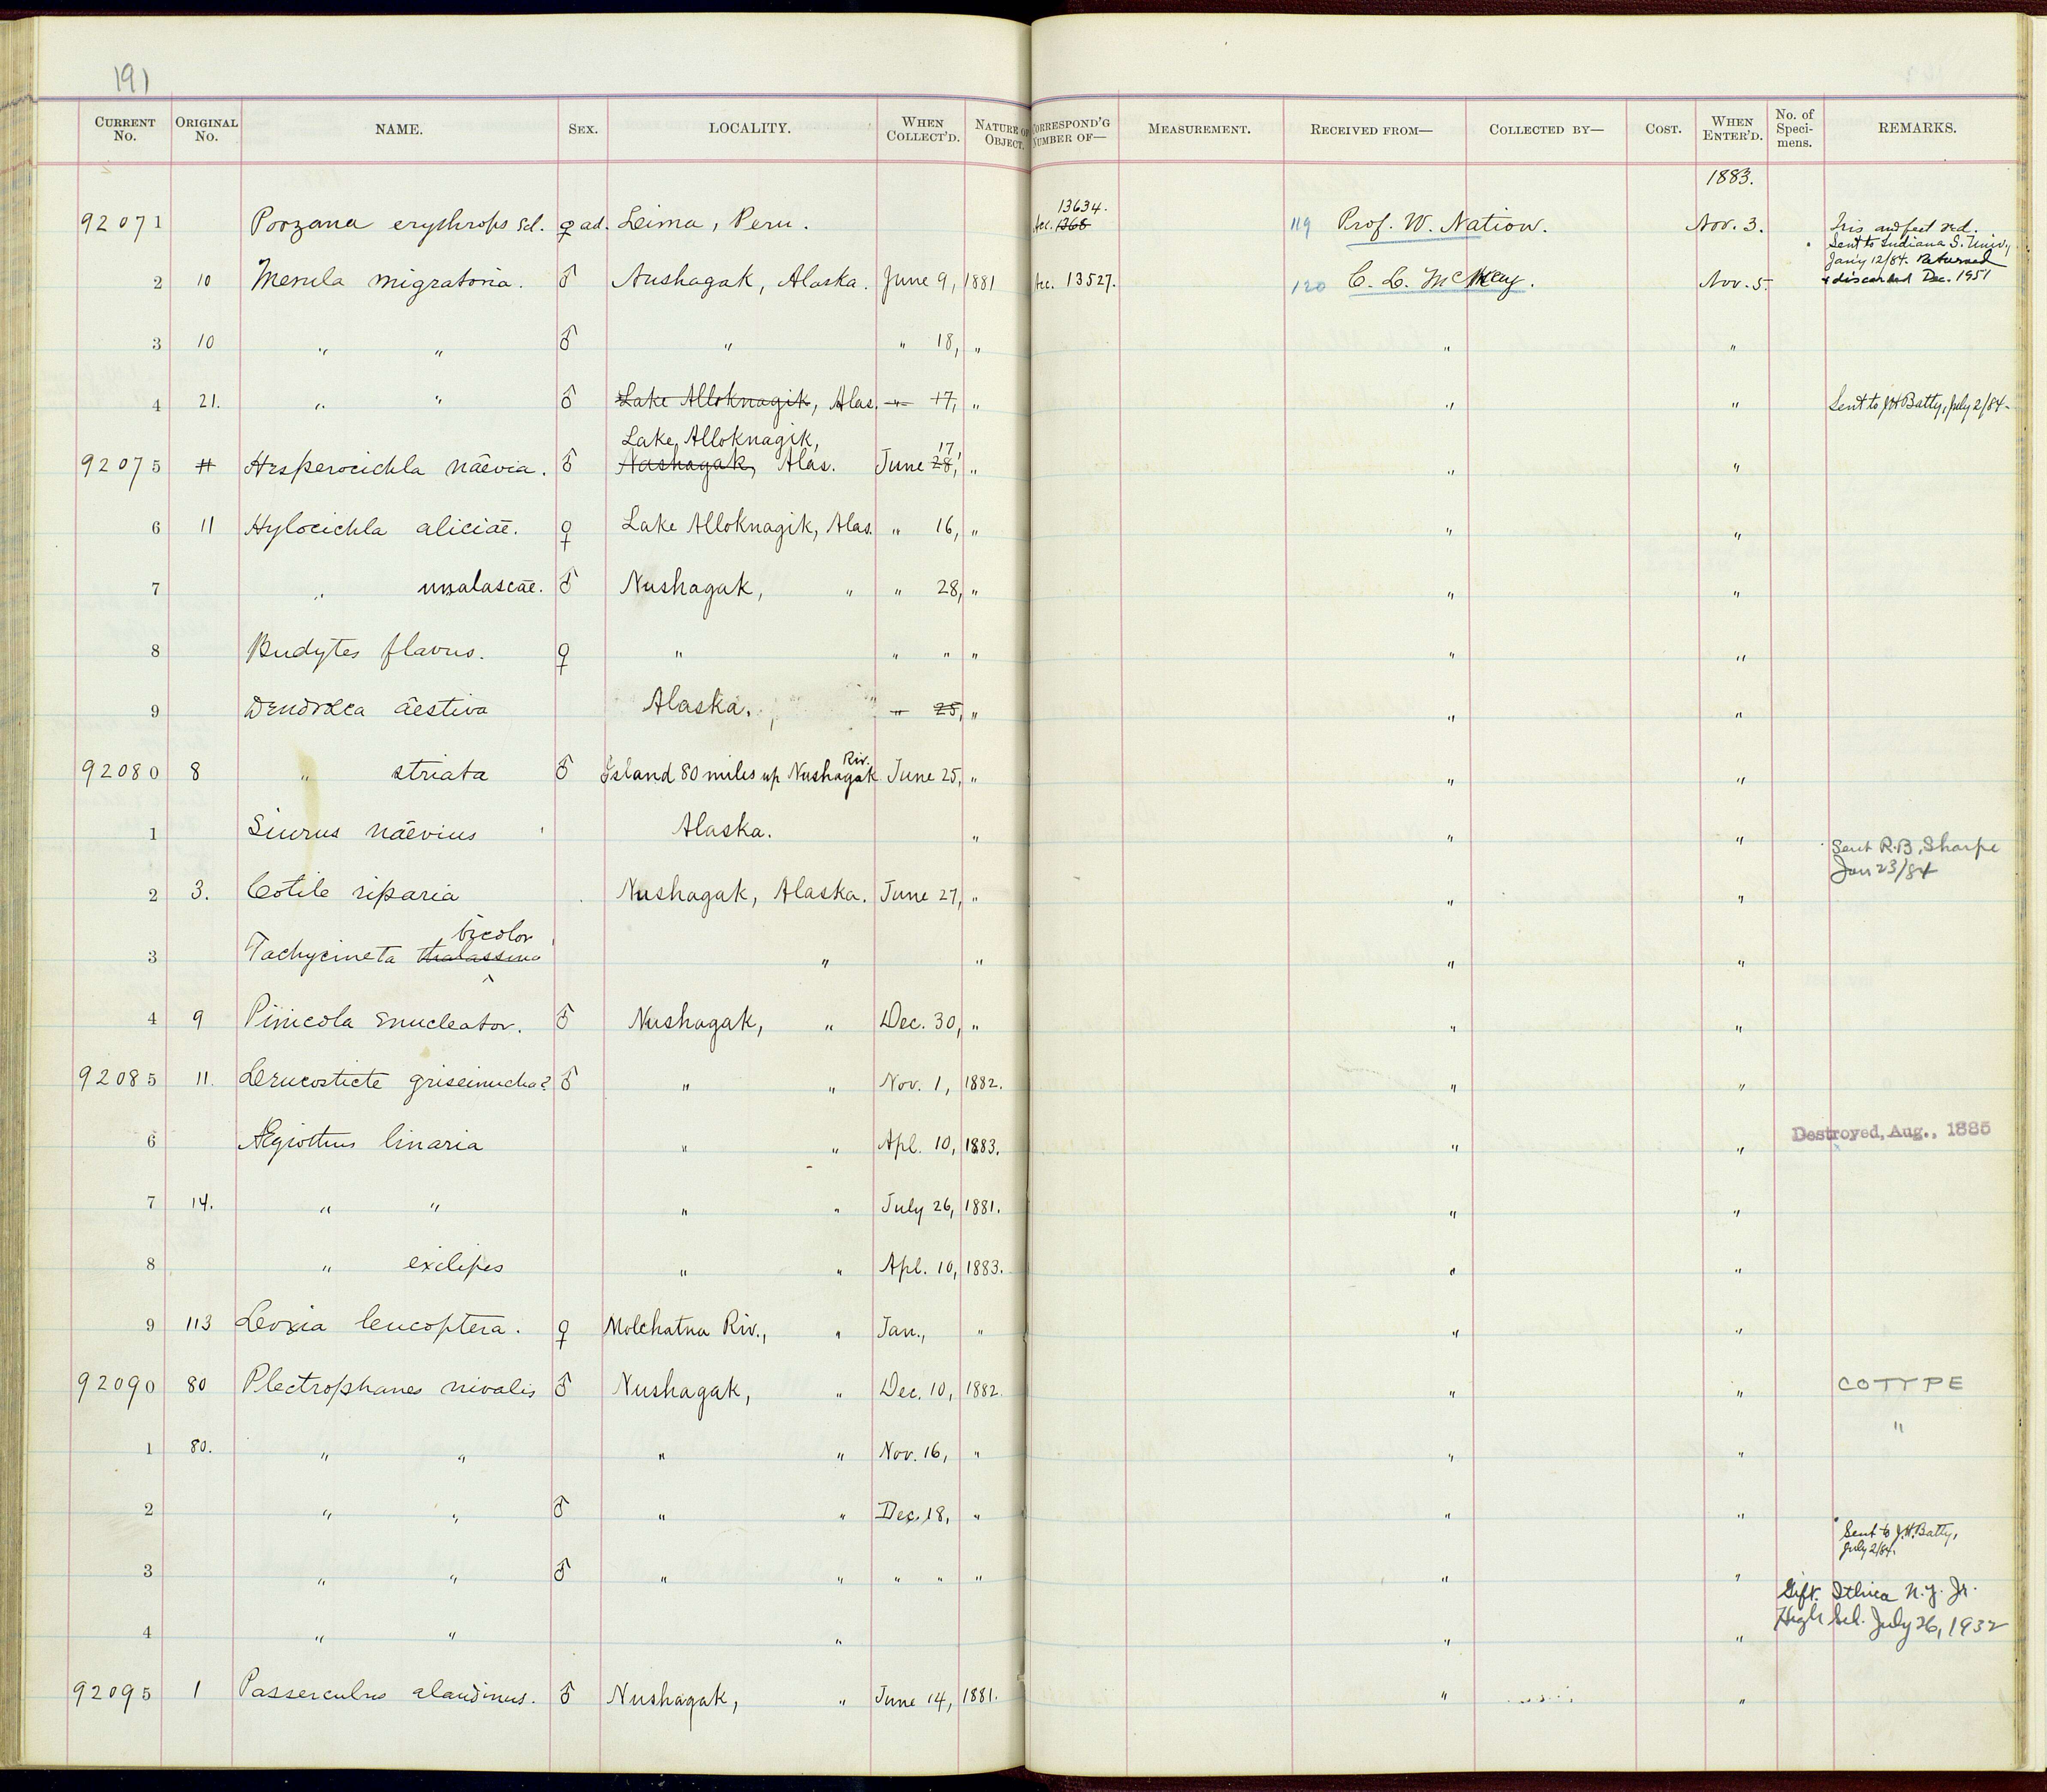 191
CURRENT No. ORIGINAL No. NAME. SEX. LOCALITY. WHEN COLLECT'D. NATURE OF OBJECT. CORRESPOND'G NUMBER OF— MEASUREMENT. RECEIVED FROM— COLLECTED BY— COST. WHEN ENTER'D. No. of Speci-mens. REMARKS.
1883.
13634.
92071 Porzana erythrops Scl. ♀ ad. Leima, Peru. Acc. 1368 119 Prof. W. Nation. Nov. 3. Iris and feet red.
Sent to Indiana S. Univ,
Jan'y 12/84. Returned
2 10 Merula migratoria. ♂ Nushagak, Alaska. June 9, 1881 Acc. 13527. 120 C. L. McKay. Nov. 5. & discarded Dec. 1951
3 10 " " ♂ " " 18, " " "
4 21. " " ♂ Lake Alloknagik, Alas. " 17, " " " Sent to JH Batty, July 2/84.
Lake Alloknagik, 17,
92075 # Hesperocichla nævia. ♂ Nushagak, Alas. June 28, " " "
6 11 Hylocichla aliciæ. ♀ Lake Alloknagik, Alas. " 16, " " "
7 " unalascæ. ♂ Nushagak, " " 28, " " "
8 Budytes flavus. ♀ " " " " " "
9 Dendrœca æstiva Alaska. " " 25, " " "
Riv.
92080 8 " striata ♂ Island 80 miles up Nushagak June 25, " " "
1 Siurus nævius Alaska. " " " Sent R.B. Sharpe
Jan 23/84
2 3. Cotile riparia Nushagak, Alaska. June 27, " " "
bicolor
3 Tachycineta thalassina " " " "
4 9 Pinicola enucleator. ♂ Nushagak, " Dec. 30, " " "
92085 11. Leucosticte griseinucha? ♂ " " Nov. 1, 1882. " "
6 Ægiothus linaria " " Apl. 10, 1883. " " Destroyed, Aug., 1885
7 14. " " " " July 26, 1881. " "
8 " exilipes " " Apl. 10, 1883. " "
9 113 Loxia leucoptera. ♀ Molchatna Riv., " Jan., " " "
92090 80 Plectrophanes nivalis ♂ Nushagak, " Dec. 10, 1882. " " COTYPE
1 80. " " " " Nov. 16, " " " "
2 " " ♂ " " Dec. 18, " " "
Sent to J.H. Batty,
July 2/84.
3 " " ♂ " " " " " " "
Gift. Ithica N.Y. Jr.
High Sch. July 26, 1932
4 " " " " "
92095 1 Passerculus alaudinus. ♂ Nushagak, " June 14, 1881. " "